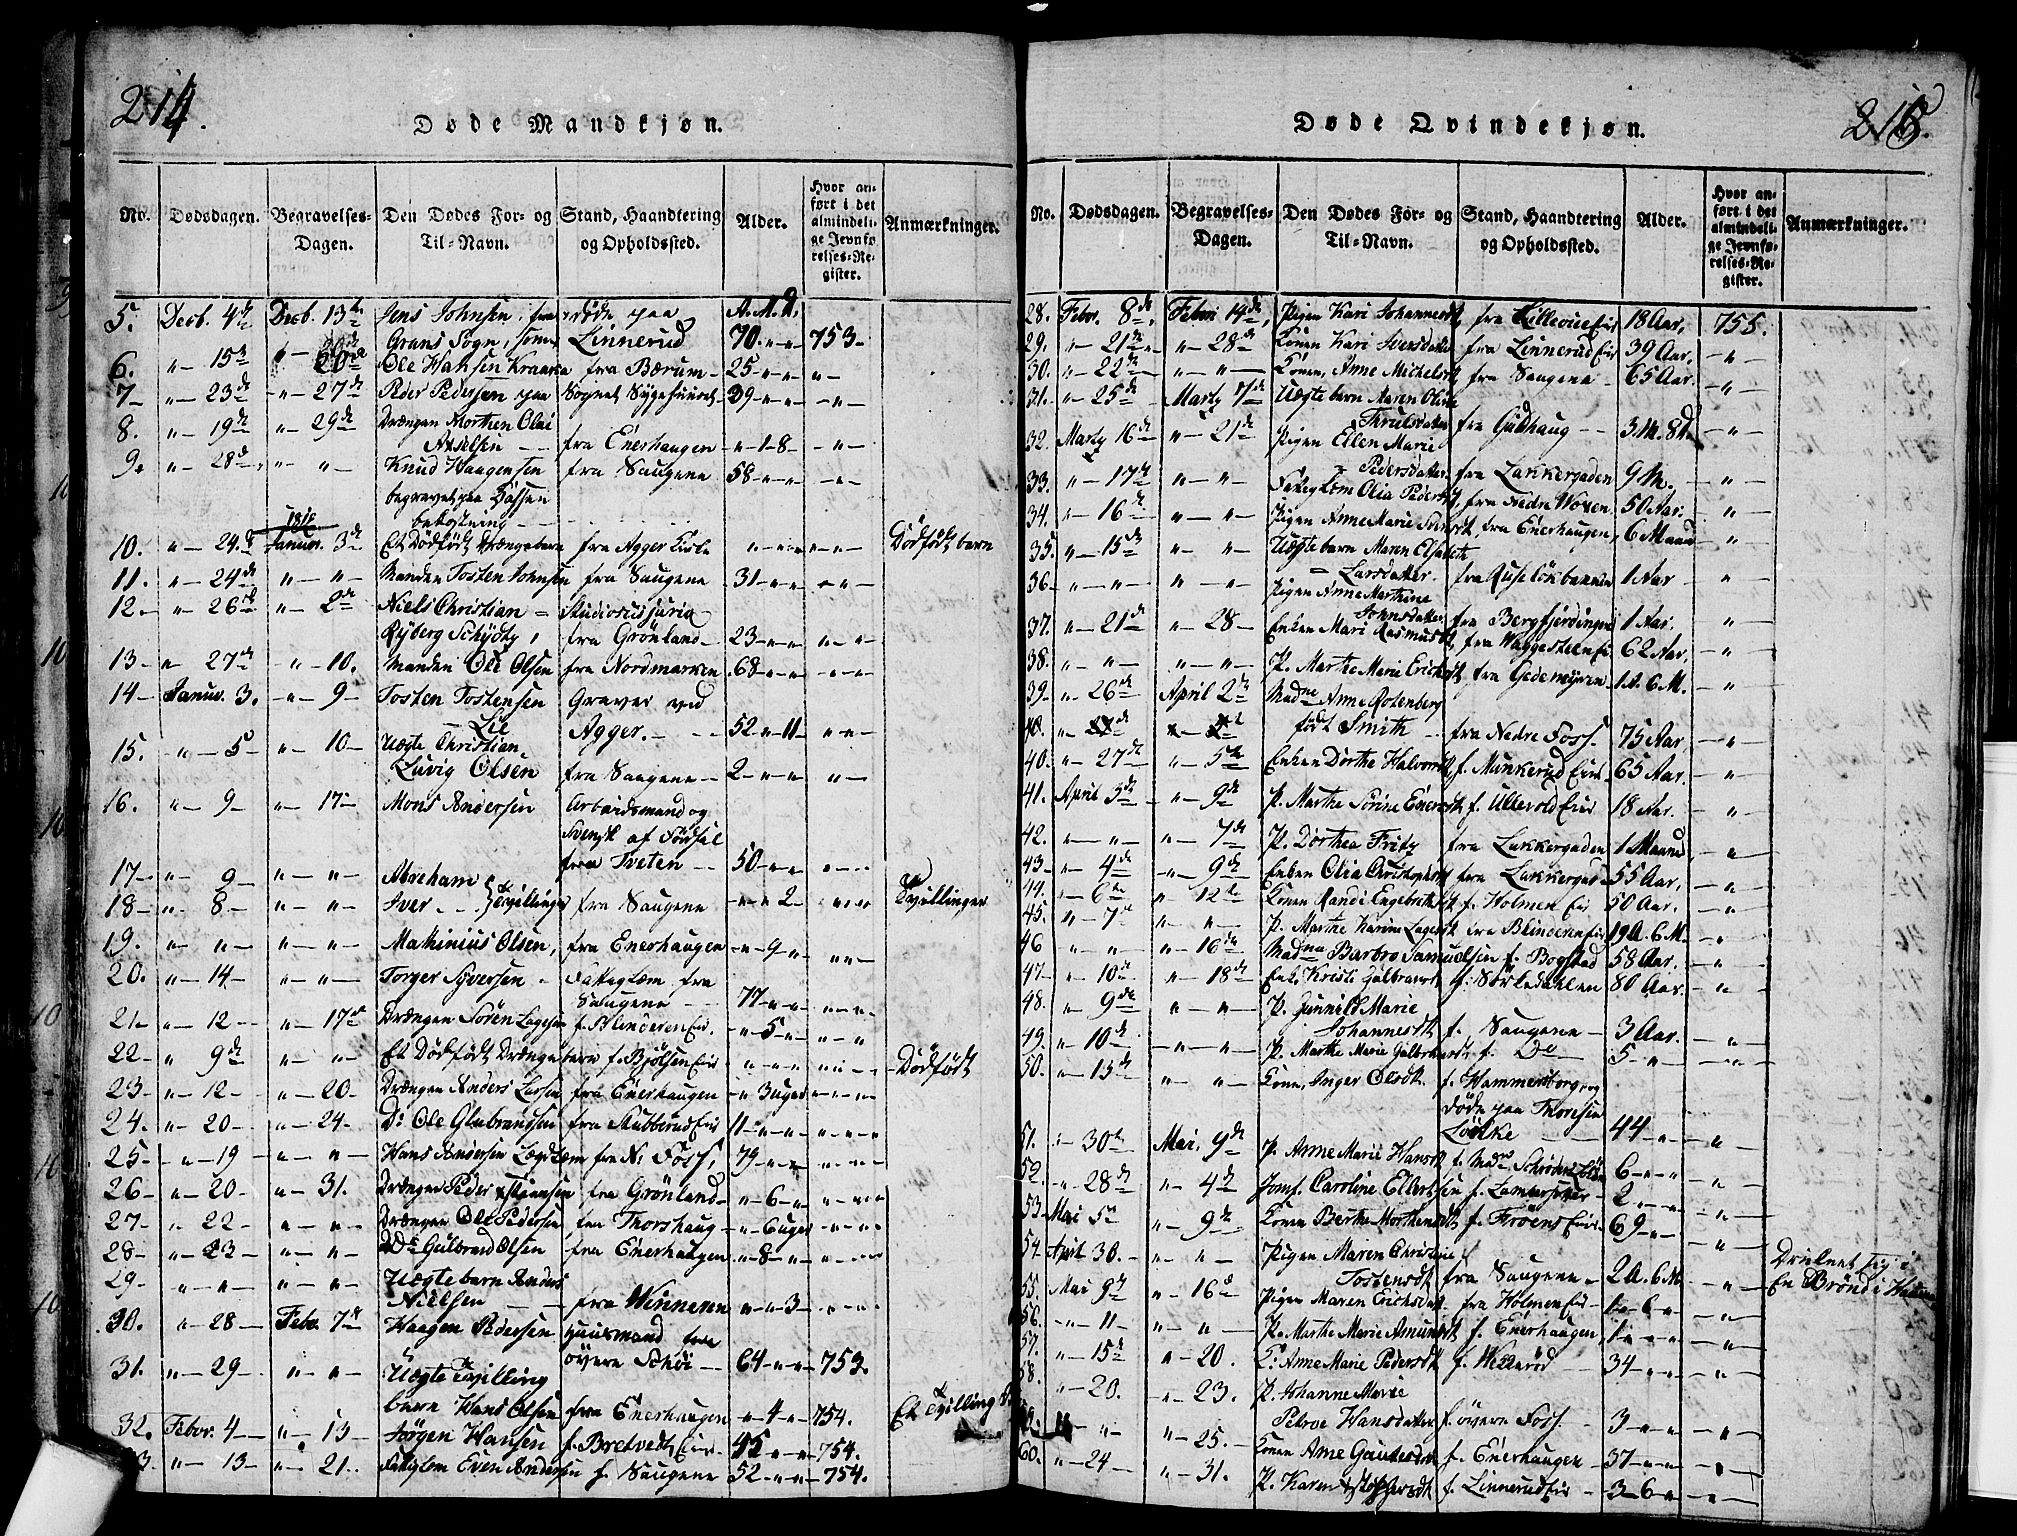 214.
Døde Mandkjøn.
No. Dødsdagen. Begravelses-Dagen. Den Dødes For- og Til-Navn. Stand, Haandtering og Opholdssted. Alder. Hvor anført i det almindelige Jevnførelses-Register. Anmærkninger.
5. Decb. 4de Decb. 13de Jens Johnsen, fra døde paa A. M. D.
Grans Sogn, Linnerud 70 - „ - „ 753 -
6. „ - 15 „ - 20de Ole Hansen Kraake fra Bærum - 25 - „ - „ „ -
7 - „ - 23de „ - 27de Peder Pedersen paa Sognets Sygehuus 39 - „ - „ - „ -
8. „ - 19de „ - 29de Drængen Morthen Olai
Axelsen - - fra Enerhaugen - „ - 1 - 8 - - „ -
9. „ - 28de „ - „ - Knud Haagensen fra Saugene 58 - „ - „ - „ -
begravet paa
bekostning - -
1816
10. „ - 24de Januar. 3de Et Dødfødt Drængebarn fra Agger „ - „ - „ - „ - Dödfödt barn
11. „ - 24de „ - „ - Manden Tosten Johnsen fra Saugene 31 - „ - „ - „ -
12. „ - 26de „ - 2de Niels Christian = Studiosus juris
Ryberg Schydtz, fra Grönland - 23 - „ - „ „ - „ -
13 - „ 27de „ - 10. Manden Ole Olsen fra Nordmarken 68 - „ - „ - „ -
14 - Januar. 3. - „ - 9 - Tosten Tostensen Graver ved
Lie Agger. - - 52 - „ - 11 - „ - „ -
15. „ - 5 - „ - 10 - Uægte Christian
Luvig Olsen fra Saugene - 2 - „ - „ „ - „ -
16. „ - 9 - „ - 17 - Mons Andersen Arbeidsmand og
Svensk af Födsel
fra Tveten - - 50 - „ - „ „ - „ -
17 - „ - 9 - „ - „ - Abraham
18 - „ - 8 - „ - „ - Iver - - Tvillinger fra Saugene - „ - „ 2 - „ - „ - Tvillinger
19. „ - „ - „ - „ - Mathinius Olsen, fra Enerhaugen - „ - 9 - „ „ - „ -
20. „ - 14 - „ - „ - Torger Syversen - Fattiglem fra
Saugene - - 77 - „ - „ „ - „ -
21 - „ - 12 - „ - 17de Drængen Sören Lagesen f. Blinderen Eie. - „ - 5 - „ „ - „
22 - „ 9de „ - „ - Et Dödfödt Drængebarn f. Bjølsen Eie „ - „ - „ „ - „ - Dödfödt
23 - „ - 12 - „ - 20 - Drængen Anders Larsen fra Enerhaugen - „ - 3 uger - „ - „ -
24. „ - 20 - „ - 24 - D: Ole Gulbrandsen fra Stubberud Eie 11 - „ - „ „ - „ -
25 - „ - 19 „ - „ - Hans Andersen Lægdlem fra N: Foss, 79 - „ - „ „ - „ -
26 - „ - 20 - „ - 31. Drængen Peder fra Grönland - „ - 6 - „ „ - „ -
27 - „ - 22 - „ - „ - Drængen Ole Pedersen fra Thorshaug - - „ - 6 uger - „ - „ -
28 - „ - 23 - „ - „ - D: Gulbrand Olsen fra Enerhaugen - „ - 8 - „ „ - „ -
29 - „ - „ - „ - „ - Uægtebarn Anders
Nielsen - - fra Winneren „ - „ - 3 - „ - „ -
30. „ - 28 - Febr. 7de Haagen Pedersen Huusmand fra
övere Schöi - 64 - „ - „ 753.
31. „ - 29 - „ - „ - Uægte Tvilling
barn Hans Olsen fra Enerhaugen - „ - 4 - „ 754. Et Tvilling
32. Febr. 4 - „ - 13 - Jørgen Hansen f. Bretvedt Eie - 45 - „ - „ 754.
33. „ - 13 - „ - 21 - Fattiglem Even Andersen f. Saugene 52 - „ - „ - 754.
215.
Døde Qvindekjøn.
No. Dødsdagen. Begravelses-Dagen. Den Dødes For- og Til-Navn. Stand, Haandtering og Opholdssted. Alder. Hvor anført i det almindelige Jevnførelses-Register. Anmærkninger.
28. Febr. 8de Febr. 14de Pigen Kari Johannesdt. fra Lilleoue Eie 18 Aar, 755.
29. „ - 21de „ - 28de Konen Kari Iversdatter fra Linnerud Eie 39 Aar, - „ -
30. „ - 22de „ - „ - Konen, Anne Michelsdt. fra Saugene - 65 Aar. - „ -
31. „ - 25de Martz 7de Uægtebarn Maren Oline
Thrulsdatter fra Gubhaug - - 3 M. 8 d. - „ -
32. Martz 16de „ - 21de Pigen Ellen Marie
Pedersdatter fra Lakkergaden 9 M. - „ -
33. „ - 17de „ - „ - Fattiglem Olia Pedersdt. fra Nedre Woxen, 50 Aar. - „ -
34. „ - 16de „ - „ - Pigen Anne Marie Svensdt. fra Enerhaugen, 6 Maand - „ -
35. „ - 15de „ - „ - Uægtebarn Maren Elsebeth
= Larsdatter. fra Ruseløkbakken 1 Aar - „ -
36 - „ - „ - „ - „ - Pigen Anne Marthine
Johnsdatter fra Bergfjerdingen 1 Aar. - „ -
37. „ - 21de „ - 28 - Enken Mari Rasmusdt. fra Waggesteen Eie 62 Aar. - „ -
38. „ - „ - „ - „ - P. Marthe Marie Erichsdt. fra Gjedemyren - 1 A. 6 M. - „ -
39. „ - 26de April 2de Mad. Anne Rotenberg
født Smith - fra Nedre Foss. 75 Aar - „ -
40. „ - 27de „ - 5te Enken Dorthe Halvorsdt. f. Munkerud Eie - 65 Aar. - „ -
41. April 3de „ - 9de P. Marthe Sørine Enersdt. f. Ullevold Eie 18 Aar. - „ -
42. „ - „ - „ - 7de P. Dorthea Fritz fra Lakkergaden 1 Maaned - „ -
43 - „ - 4de „ - 9de Enken Olia Christophsdt. fra Lakkergad - 55 Aar. - „ -
44. „ - 6te „ - 12te Konen Randi Engebrethsdt. f. Holmen Eie 50 Aar. - „ -
45. „ - 7de „ - „ - P. Marthe Karine Lagesdt. fra Blinderen Eie 19 A. 6 M. - „ -
46 „ - „ - „ - 16de Mad. Barbro Samuelsen f. Bogstad 58 Aar. - „ -
47 - „ - 10de „ - 18de Enk: Kristi Gulbrandsdt. f. Sørkedahlen 80 Aar. - „ -
48. „ - 9de „ - „ - P. Gunnild Marie
Johannesdt. f. Saugene - 3 Aar. - „ -
49. „ - 10de „ - „ - P. Marthe Marie Gulbrandsdt. f. Do - 5 - „ - „ -
50. „ - 15de „ - „ - Konen, Inger Olsdt. f. Hammersborg, og
døde paa Thoresen
Løkke - - 44 - „ - - „ -
51. „ - 30te Mai, 9de P. Anne Marie Hansdt. f. Mad. Schrøders Løkke 6 - „ - „ - „ -
52. „ - 28de „ - 4de Jomf. Caroline Ellertsen f. - 2 - „ - „ - „ -
53. Mai 5te „ - 9de Konen Berthe Morthensdt. f. Frøens Eie - 69 - „ - - „ -
54. April 30. „ - „ - Pigen Maren Christine
Tostensdt. fra Saugene - 2 A. 6 M. - „ - Druknet sig i
En Brønd i
55. Mai 9de „ - 16de Pigen Maren Erichsdat. fra Holmen Eie - 1 - „ - 6 - „ - „ -
56. „ - 11 - „ - „ - P. Marthe Marie Amundsdt. f. Enerhaugen, 1 - „ - „ - „ -
57. „ - 15de „ - 20. K: Anne Marie Pedersdt. f. - 34 - „ - „ - „ -
58. „ - 20. „ - 23. P. Johanne Marie
Petroe Hansdatter f. øvere Foss. - 3 - „ - „ - „ -
„ - „ - „ - 25. - Konen Anne Gautesdat. f. Enerhaugen - 37 - „ - „ - „ -
60. „ - 24 - „ - 31. P. Karen f. Linnerud Eie - 3 - 6 - „ - „ -